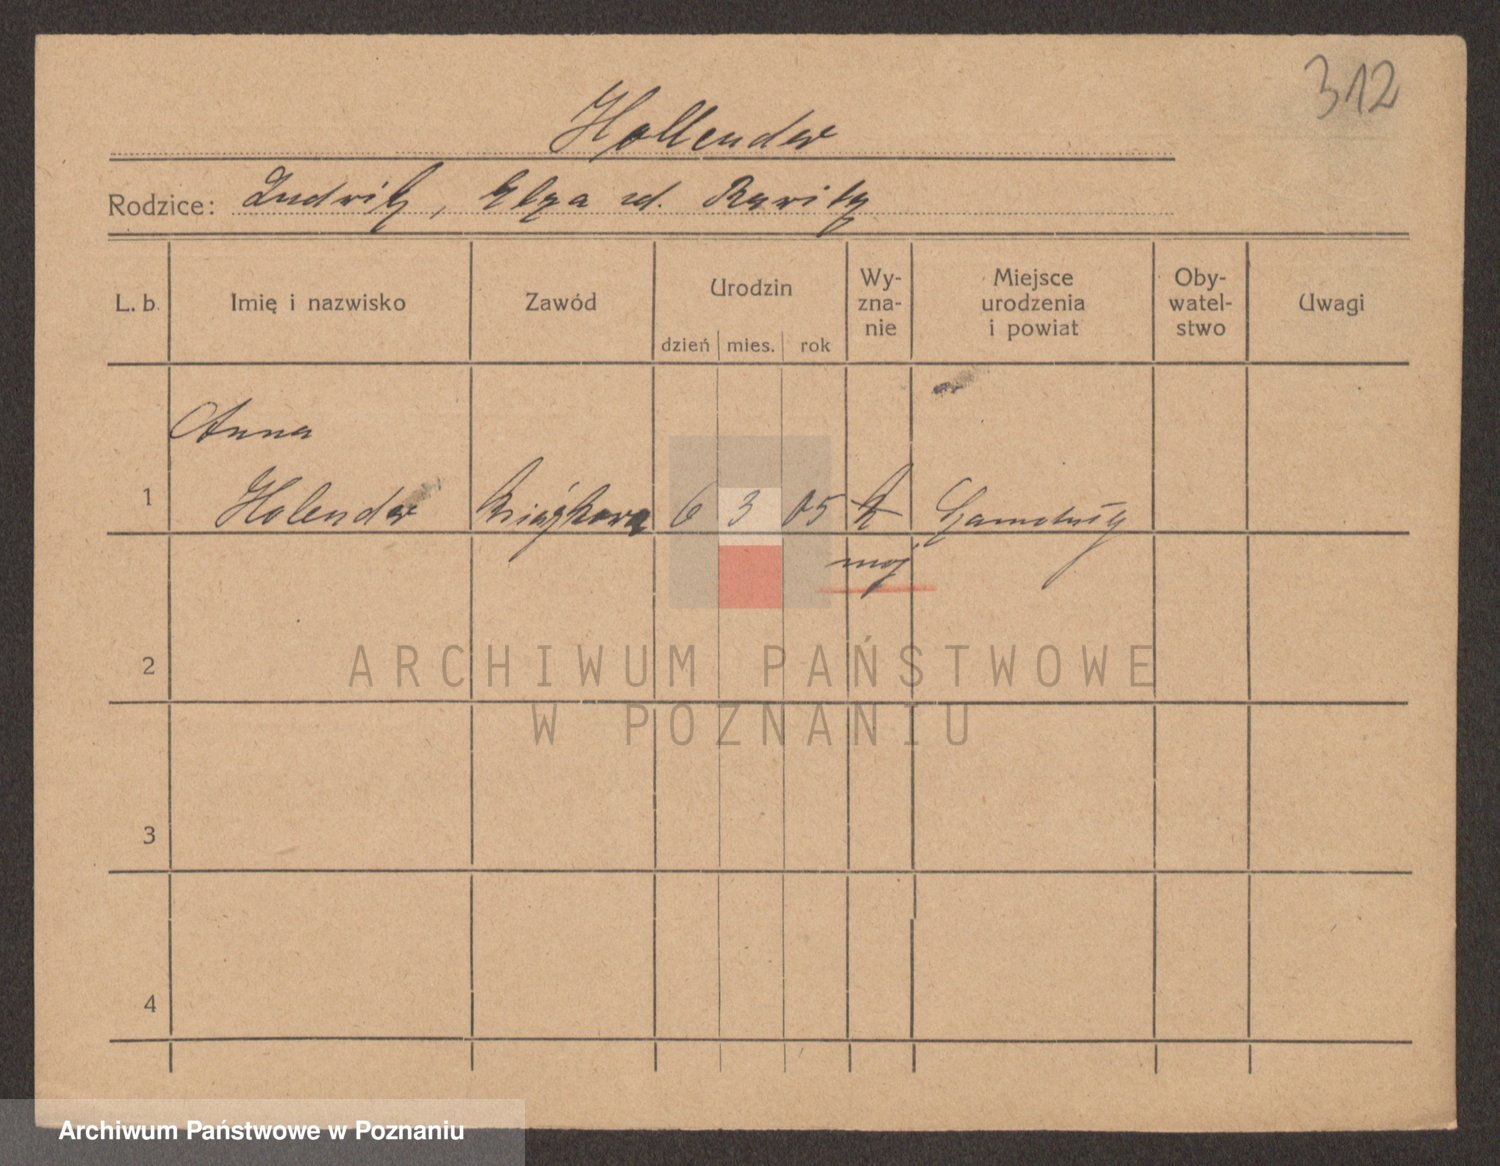 312
Hollender
Rodzice: Ludwik, Elza zd. Rawitz
L. b. Imię i nazwisko Zawód Urodzin dzień mies. rok Wy-zna-nie Miejsce urodzenia i powiat Oby-watel-stwo Uwagi
Anna
1 Holender 6 3 05
moj
2
3
4
ARCHIWUM PAŃSTWOWE
W POZNANIU
Archiwum Państwowe w Poznaniu